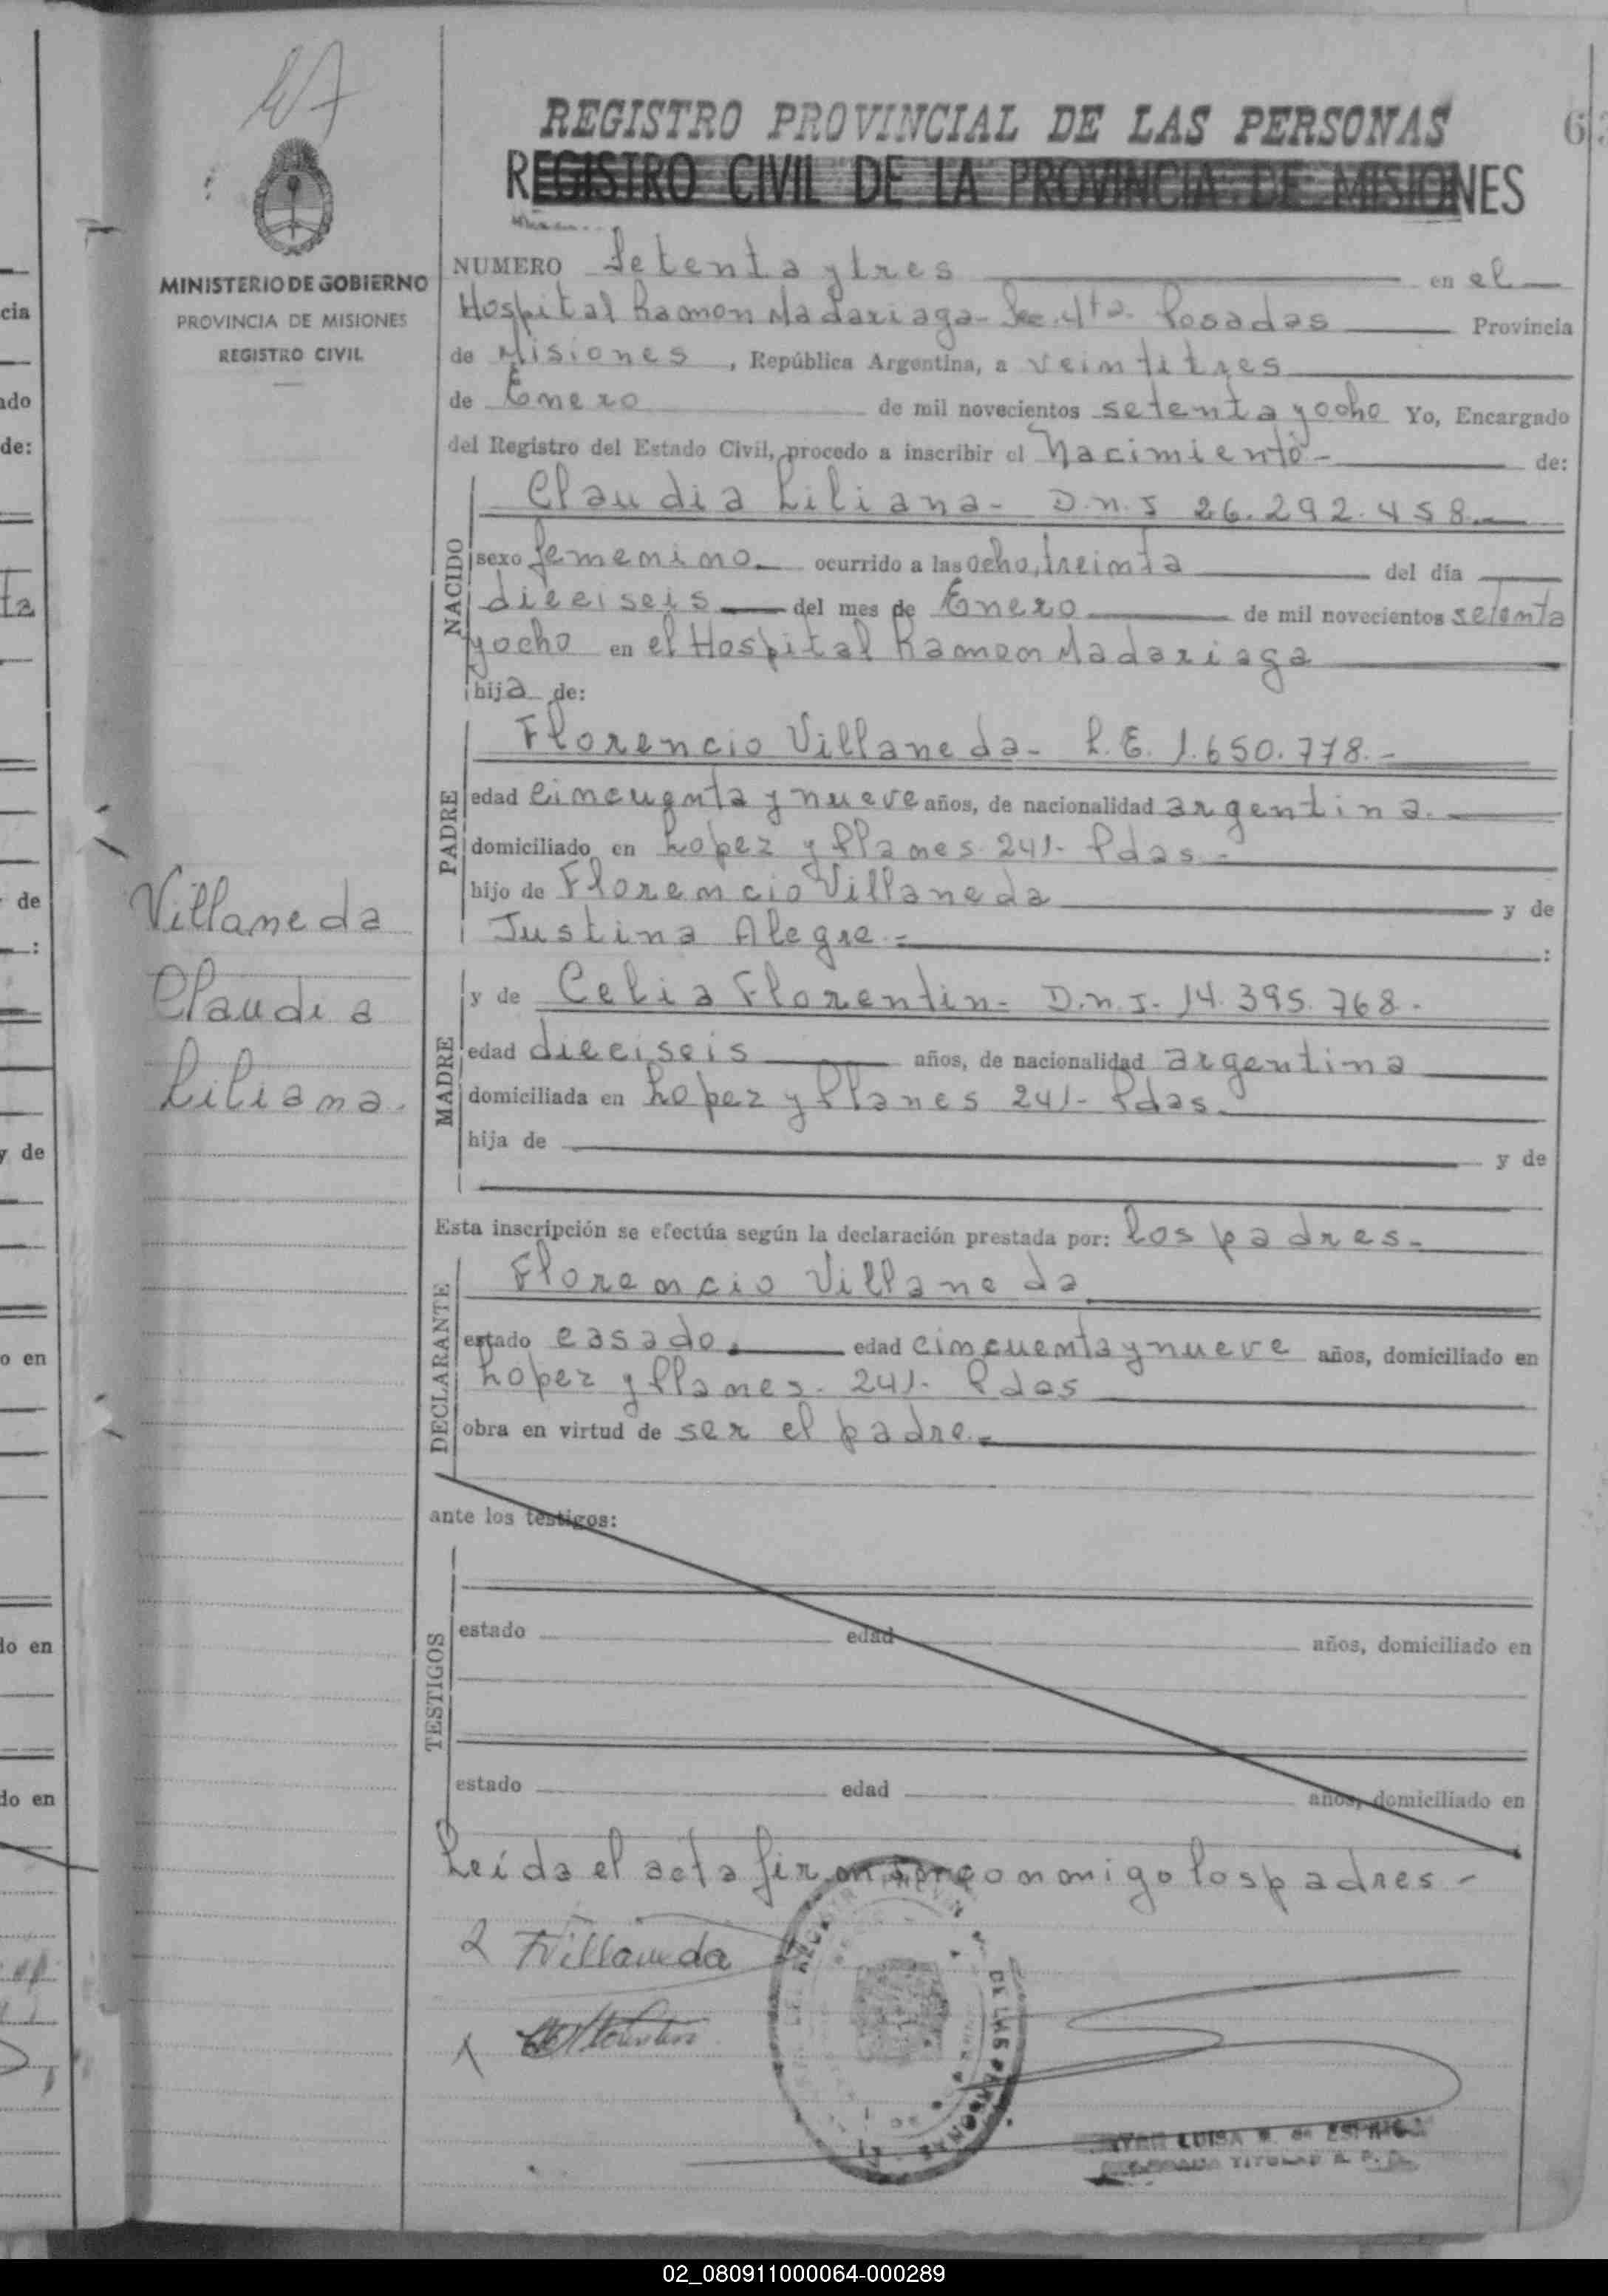 REGISTRO PROVINCIAL DE LAS PERSONAS
REGISTRO CIVIL DE LA PROVINCIA DE MISIONES
MINISTERIO DE GOBIERNO
PROVINCIA DE MISIONES
REGISTRO CIVIL
NUMERO Setenta y tres en el
Hospital Ramon Madariaga - Sec. 4ta. Posadas Provincia
de Misiones, República Argentina, a veintitres
de Enero de mil novecientos setenta y ocho Yo, Encargado
del Registro del Estado Civil, procedo a inscribir el Nacimiento - de:
NACIDO
Claudia Liliana - D.N.I 26.292.458.-
sexo femenino. ocurrido a las ocho, treinta del día
dieciseis del mes de Enero de mil novecientos setenta
y ocho en el Hospital Ramon Madariaga
hija de:
PADRE
Florencio Villaneda - L.E. 1.650.778.-
edad cincuenta y nueve años, de nacionalidad argentina.
domiciliado en Lopez y Planes. 241- Pdas.-
hijo de Florencio Villaneda y de
Justina Alegre.- :
Villaneda
Claudia
Liliana.
MADRE
y de Celia Florentin - D.N.I- 14.395.768.-
edad dieciseis años, de nacionalidad argentina
domiciliada en Lopez y Planes 241- Pdas.
hija de y de
Esta inscripción se efectúa según la declaración prestada por: los padres.-
DECLARANTE
Florencio Villaneda
estado casado. edad cincuenta y nueve años, domiciliado en
Lopez y Planes. 241- Pdas
obra en virtud de ser el padre.-
ante los testigos:
TESTIGOS
estado edad años, domiciliado en
estado edad años, domiciliado en
Leída el acta firman conmigo los padres -
FVillaneda
DE LAS PERSONAS
LUISA
TITULAR
02_080911000064-000289